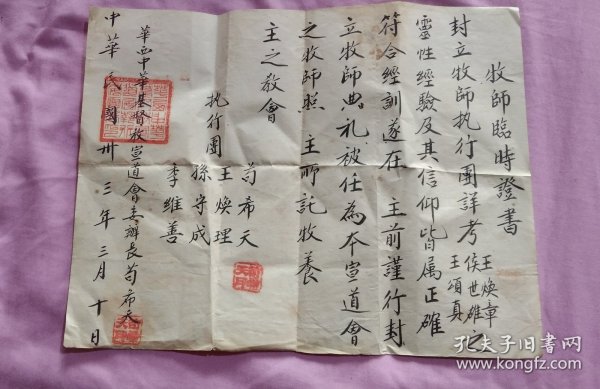 牧師臨時證書
封立牧師执行團詳考王煥章侯世雄王頌真之
靈性經驗及其信仰皆属正確
符合經訓遂在 主前謹行封
立牧師典礼被任為本宣道會
之牧師照 主所託牧養
主之教會
执行團
荀希天
王煥理
孫守成
季維善
華西中華基督教宣道會委辦長荀希天
中華民國卅三年三月十日
孔夫子旧书网
www.kongfz.com